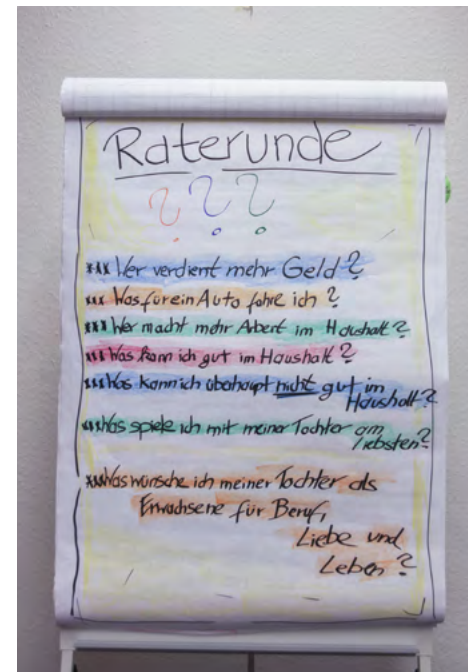 Raterunde
? ? ?
*** Wer verdient mehr Geld?
*** Was für ein Auto fahre ich?
*** Wer macht mehr Arbeit im Haushalt?
*** Was kann ich gut im Haushalt?
*** Was kann ich überhaupt nicht gut im
Haushalt?
*** Was spiele ich mit meiner Tochter am
liebsten?
*** Was wünsche ich meiner Tochter als
Erwachsene für Beruf,
Liebe und
Leben?